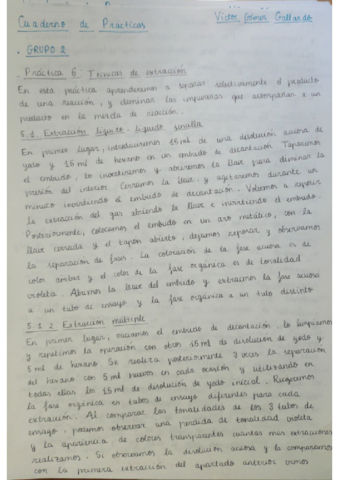 Cuaderno de Prácticas
Victor Gómez Gallardo
· GRUPO 2
Práctica 6: Técnicas de extracción
En esta práctica aprenderemos a separar selectivamente el producto
de una reacción, y eliminar las impurezas que acompañan a un
producto en la mezcla de reacción.
5.1. Extracción líquido-líquido sencilla
En primer lugar, introduciremos 15 ml de una disolución acuosa de
yodo y 15 ml de hexano en un embudo de decantación. Taparemos
el embudo, lo invertiremos y abriremos la llave para eliminar la
presión del interior. Cerramos la llave y agitaremos durante un
minuto invirtiendo el embudo de decantación. Volvemos a repetir
la extracción del gas abriendo la llave e invirtiendo el embudo.
Posteriormente, colocamos el embudo en un aro metálico, con la
llave cerrada y el tapón abierto, dejamos reposar y observamos
la separación de fases. La coloración de la fase acuosa es de
color ámbar y el color de la fase orgánica es de tonalidad
violeta. Abrimos la llave del embudo y extraemos la fase acuosa
a un tubo de ensayo y la fase orgánica a un tubo distinto
5.1.2. Extracción múltiple
En primer lugar, vaciamos el embudo de decantación, lo limpiamos
y repetimos la operación con otros 15 ml de disolución de yodo y
5 ml de hexano. Se realiza posteriormente 3 veces la separación
del hexano con 5 ml nuevos en cada ocasión y utilizando en
todas ellas los 15 ml de disolución de yodo inicial. Recogemos
la fase orgánica en tubos de ensayo diferentes para cada
extracción. Al comparar las tonalidades de los 3 tubos de
ensayo, podemos observar una pérdida de tonalidad violeta
y la apariencia de colores transparentes cuantas más extracciones
realizamos. Si observamos la disolución acuosa y la comparamos
con la primera extracción del apartado anterior vemos